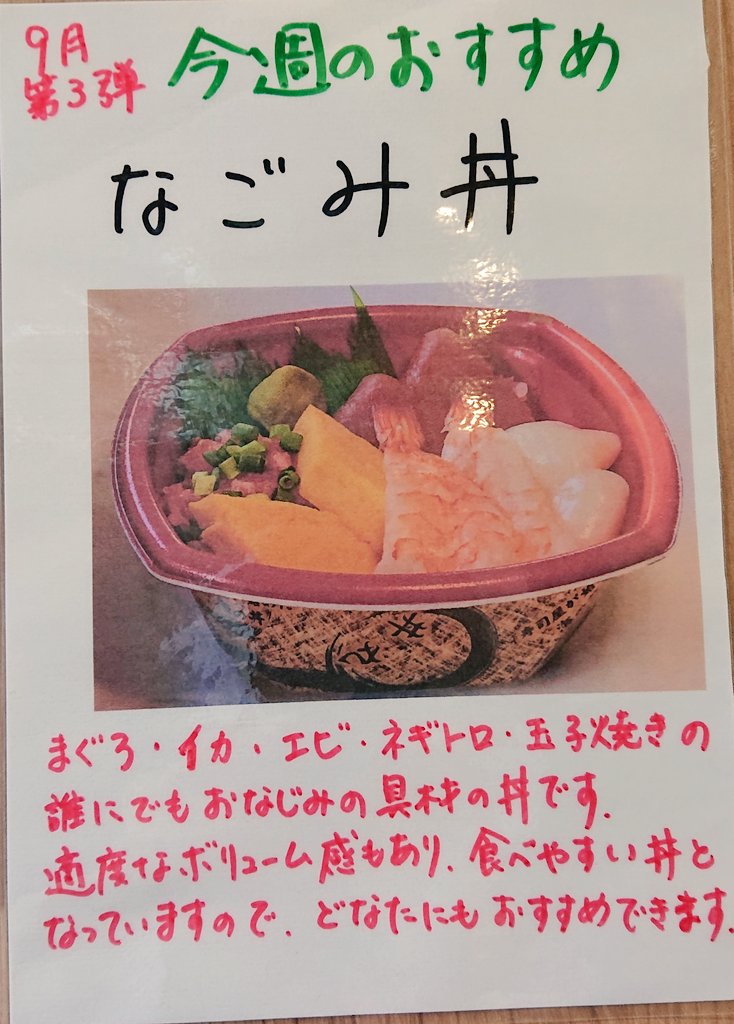 9月
第3弾
今週のおすすめ
なごみ丼
丼丸
まぐろ・イカ・エビ・ネギトロ・玉子焼きの
誰にでもおなじみの具材の丼です.
適度なボリューム感もあり、食べやすい丼と
なっていますので、どなたにもおすすめできます.